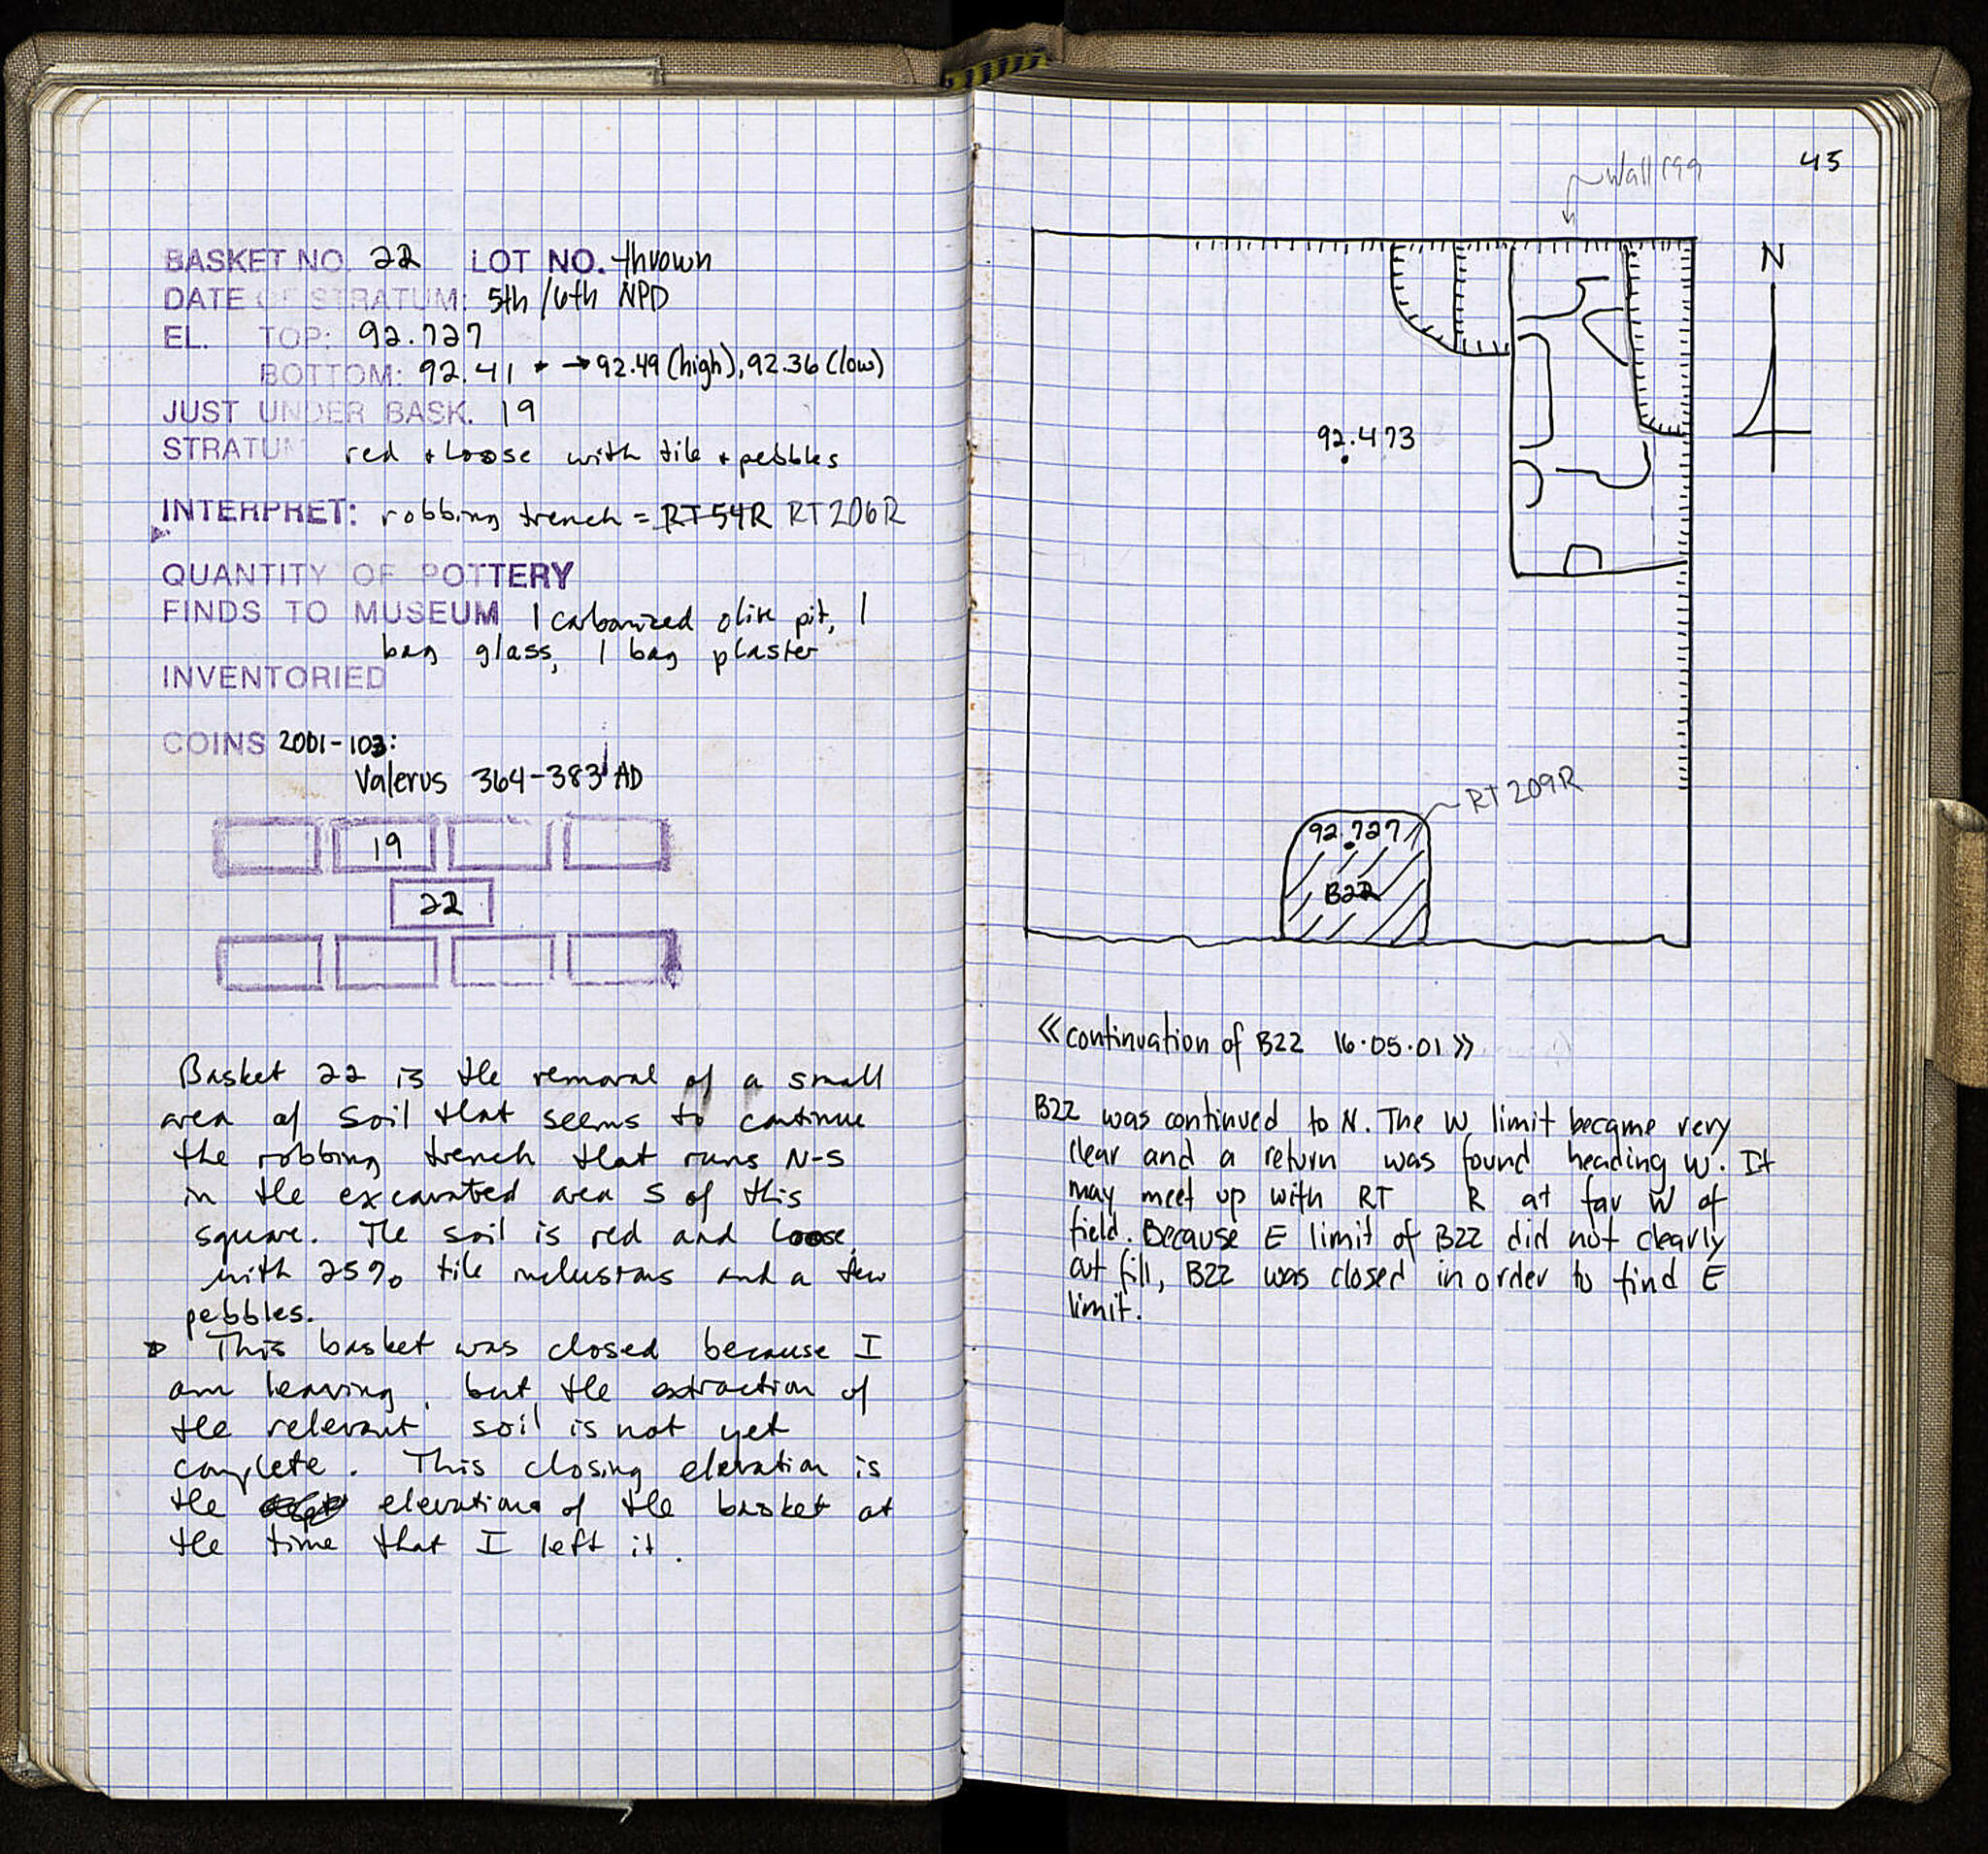 BASKET NO. 22 LOT NO. thrown
DATE OF STRATUM: 5th/6th NPD
EL. TOP: 92.727
BOTTOM: 92.41 * → 92.49 (high), 92.36 (low)
JUST UNDER BASK. 19
STRATUM red + loose with tile + pebbles
INTERPRET: robbing trench = RT 54R RT 206R
QUANTITY OF POTTERY
FINDS TO MUSEUM 1 carbonized olive pit, 1
bag glass, 1 bag plaster
INVENTORIED
COINS 2001-103:
Valerus 364-383 AD
19
22
Basket 22 is the removal of a small
area of soil that seems to continue
the robbing trench that runs N-S
in the excavated area S of this
square. The soil is red and loose
with 25% tile inclusions and a few
pebbles.
* This basket was closed because I
am leaving, but the extraction of
the relevant soil is not yet
complete. This closing elevation is
the elevations of the basket at
the time that I left it.
45
Wall 199
N
92.473
RT 209R
92.727
B22
«continuation of B22 16.05.01»
B22 was continued to N. The W limit became very
clear and a return was found heading W. It
may meet up with RT R at far W of
field. Because E limit of B22 did not clearly
cut fill, B22 was closed in order to find E
limit.